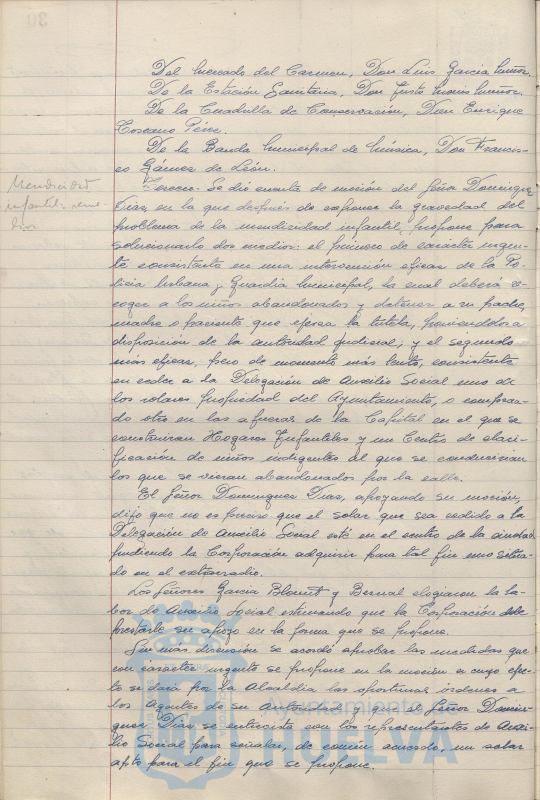 Del Mercado del Carmen, Don Luis Garcia Muñoz.
De la Estación Sanitaria, Don Justo Muñoz.
De la Cuadrilla de Conservación, Don Enrique
Toscano Pérez.
De la Banda Municipal de Música, Don Francis-
co Gámez de León.
Mendicidad
infantil: reme-
dios
Se dió cuenta de moción del Señor Dominguez
Dias, en la que después de exponer la gravedad del
problema de la mendicidad infantil, propone para
solucionarlo dos medios: el primero de caracter urgen-
te consistente en una intervención eficaz de la Po-
licia Urbana y Guardia Municipal, la cual deberá re-
coger a los niños abandonados y detener a su padre,
madre o pariente que ejerza la tutela, poniendolos a
disposición de la autoridad judicial; y el segundo
más eficaz, pero de momento más lento, consistente
en ceder a la Delegación de Auxilio Social uno de
los solares propiedad del Ayuntamiento, o compran-
do otro en las afueras de la Capital en el que se
construiran Hogares Infantiles y un Centro de clasi-
ficación de niños indigentes al que se conducirian
los que se vieran abandonados por la calle.
El Señor Dominguez Dias, apoyando su moción,
dijo que no es preciso que el solar que sea cedido a la
Delegación de Auxilio Social esté en el centro de la ciudad
pudiendo la Corporación adquirir para tal fin uno situa-
do en el extraradio.
Los Señores Garcia y Bernal elogiaron la la-
bor de Auxilio Social estimando que la Corporación debe
prestarle su apoyo en la forma que se propone.
Sin más discusión se acordó aprobar las medidas que
con caracter urgente se propone en la moción a cuyo efec-
to se dará por la Alcaldia las oportunas órdenes a
los Agentes de su Autoridad y que el Señor Domin-
guez Dias se entreviste con los representantes de Auxi-
lio Social para señalar, de común acuerdo, un solar
apto para el fin que se propone.
Ayuntamiento
HUELVA